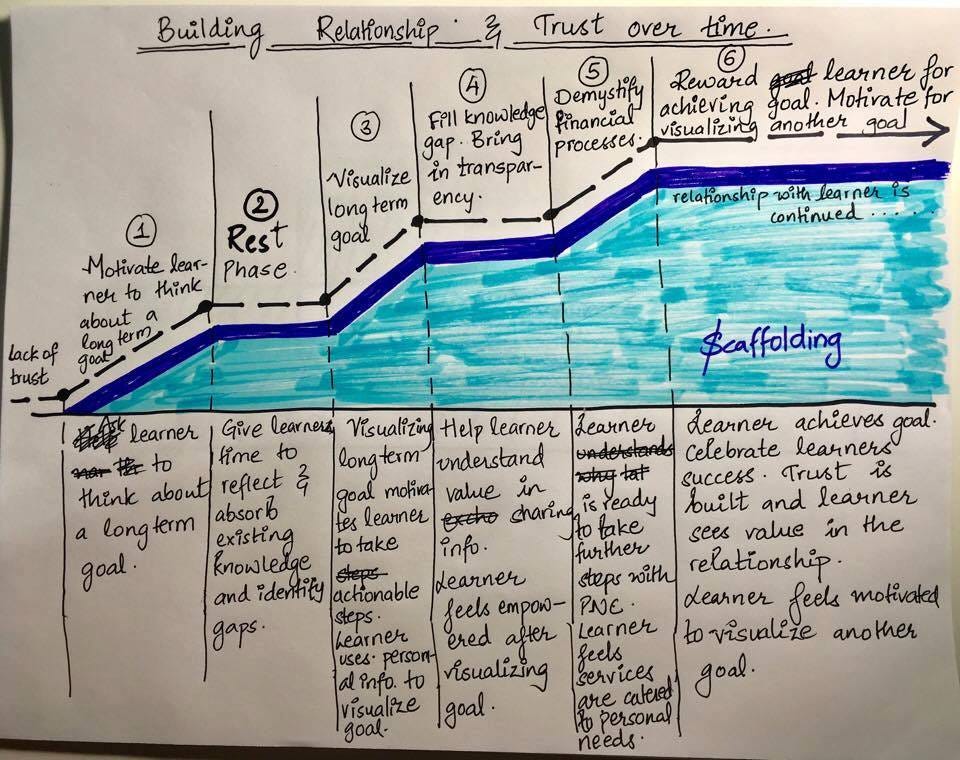 Building Relationship & Trust over time.
lack of
trust
1
Motivate lear-
ner to think
about a
long term
goal
2
Rest
Phase.
3
Visualize
long term
goal
4
Fill knowledge
gap. Bring
in transpar-
ency.
5
Demystify
financial
processes.
6
Reward goal learner for
achieving goal. Motivate for
visualizing another goal
relationship with learner is
continued.....
$caffolding
Ask learner
to
think about
a long term
goal.
Give learners
time to
reflect &
absorb
existing
knowledge
and identify
gaps.
Visualizing
long term
goal motiva-
tes learner
to take
steps
actionable
steps.
Learner
uses. person-
al info. to
visualize
goal.
Help learner
understand
value in
sharing
info.
Learner
feels empow-
ered after
visualizing
goal.
Learner
understands
why
is ready
to take
further
steps with
PNC.
Learner
feels
services
are catered
to personal
needs.
Learner achieves goal.
Celebrate learners
success. Trust is
built and learner
sees value in the
relationship.
Learner feels motivated
to visualize another
goal.